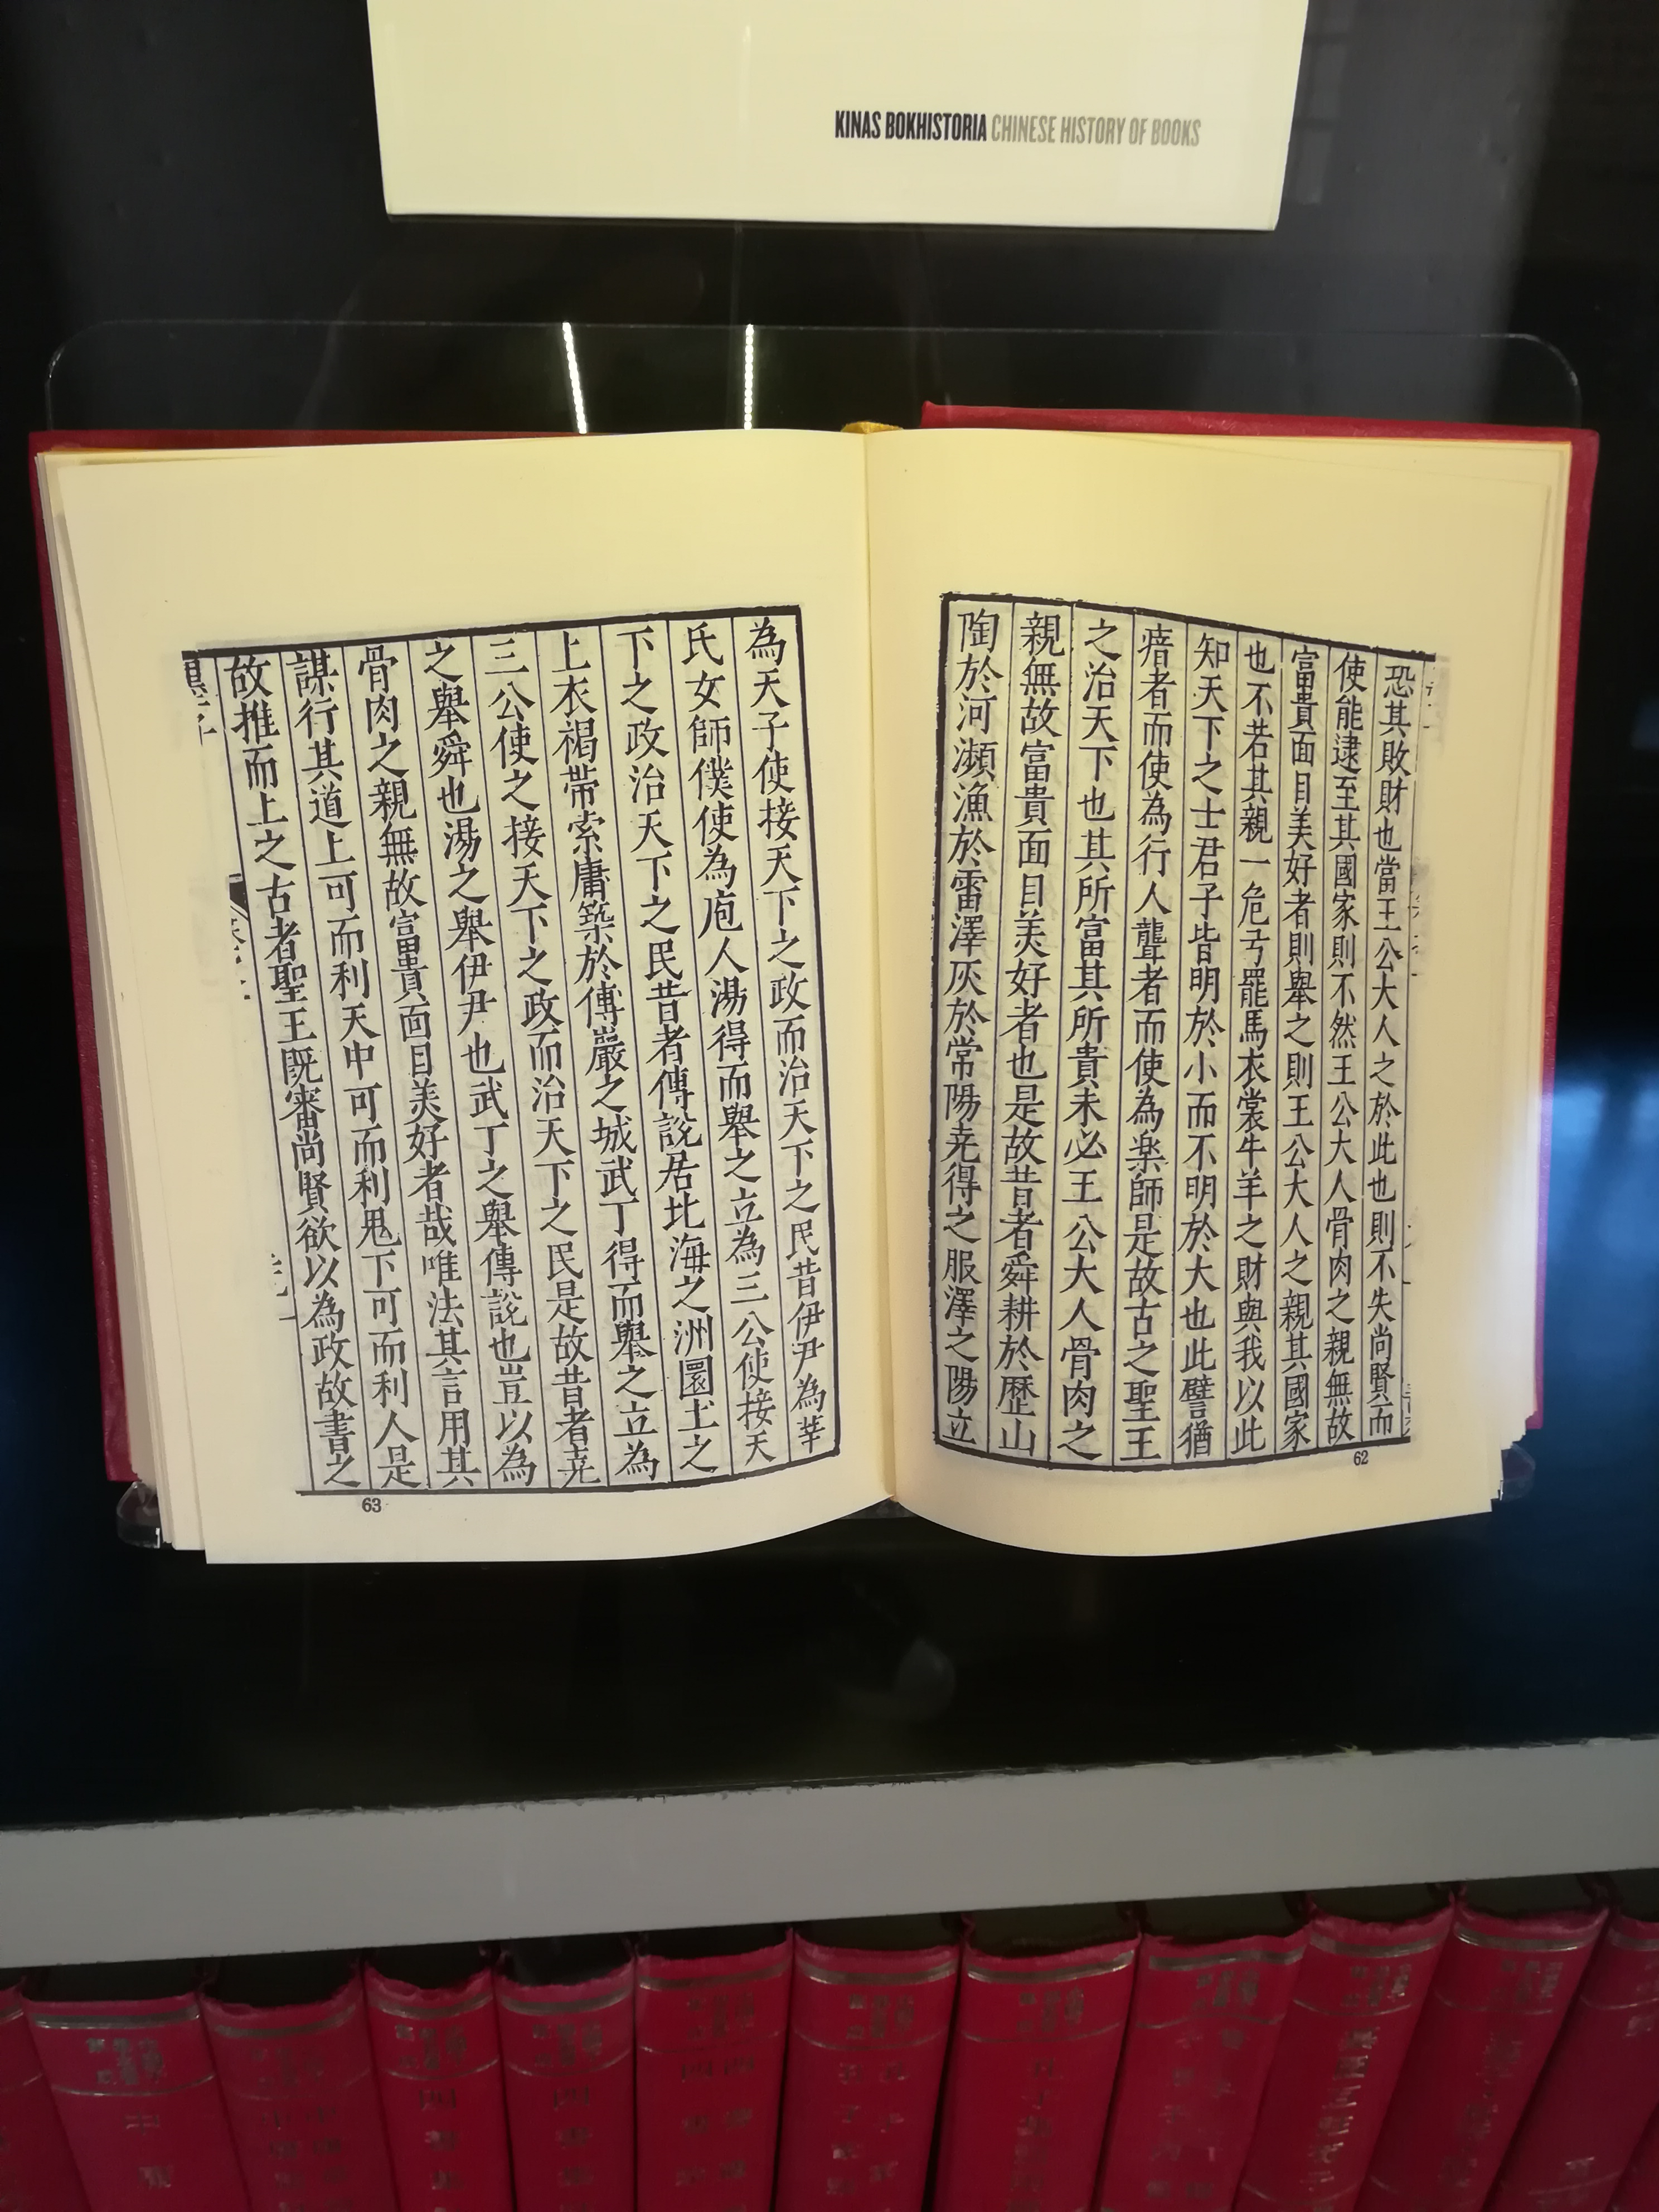 KINAS BOKHISTORIA CHINESE HISTORY OF BOOKS
恐其敗財也當王公大人之於此也則不失尚賢而
使能逮至其國家則不然王公大人骨肉之親無故
富貴面目美好者則舉之則王公大人之親其國家
也不若其親一危弓罷馬衣裳牛羊之財與我以此
知天下之士君子皆明於小而不明於大也此譬猶
瘖者而使為行人聾者而使為楽師是故古之聖王
之治天下也其所富其所貴未必王公大人骨肉之
親無故富貴面目美好者也是故昔者舜耕於歷山
陶於河瀕漁於雷澤灰於常陽尭得之服澤之陽立
62
為天子使接天下之政而治天下之民昔伊尹為莘
氏女師僕使為庖人湯得而舉之立為三公使接天
下之政治天下之民昔者傅說居北海之洲圜土之
上衣褐帶索庸築於傅巖之城武丁得而舉之立為
三公使之接天下之政而治天下之民是故昔者尭
之舉舜也湯之舉伊尹也武丁之舉傅說也豈以為
骨肉之親無故富貴面目美好者哉唯法其言用其
謀行其道上可而利天中可而利鬼下可而利人是
故推而上之古者聖王既審尚賢欲以為政故書之
63